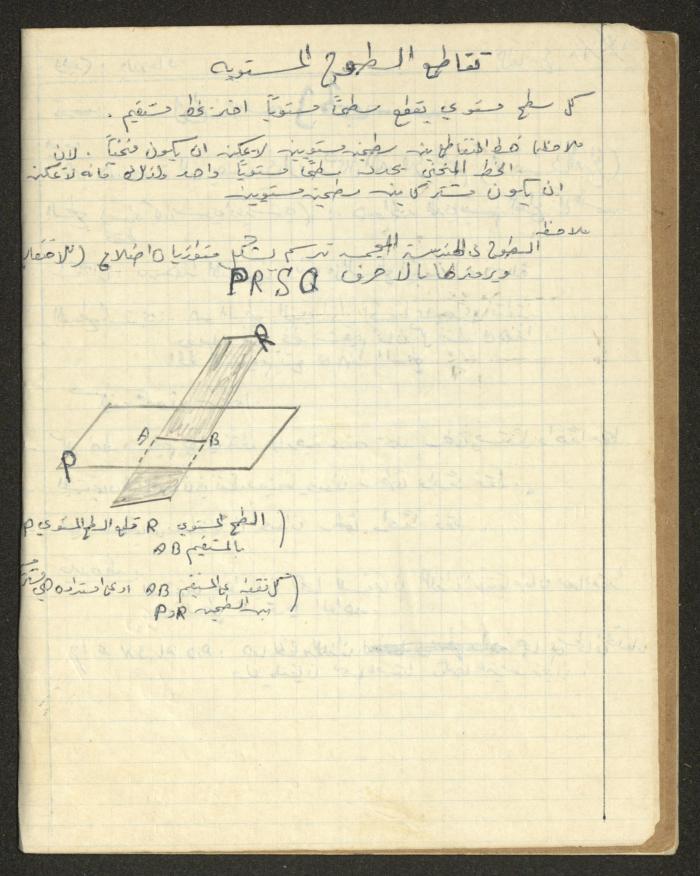 تقاطع السطوح المستويه
كل سطح مستوي يقطع سطحاً مستوياً اخر بخط مستقيم .
ملاحظة خط التقاطع بين سطحين مستويين لا يمكن ان يكون منحنياً . لان
الخط المنحني يحدد سطحاً مستوياً واحد ولذلك فانه لا يمكن
ان يكون مشتركا بين سطحين مستويين
ملاحظه
السطوح في الهندسة المجسمه ترسم بشكل متوازيات اضلاع (للاختصار
ويرمز لها بالاحرف PRSQ
R
A B
P
السطح المستوي R قطع السطح المستوي P
بالمستقيم AB
كل نقطه على المستقيم AB او على امتداده هي مشتركه
بين السطحين P و R